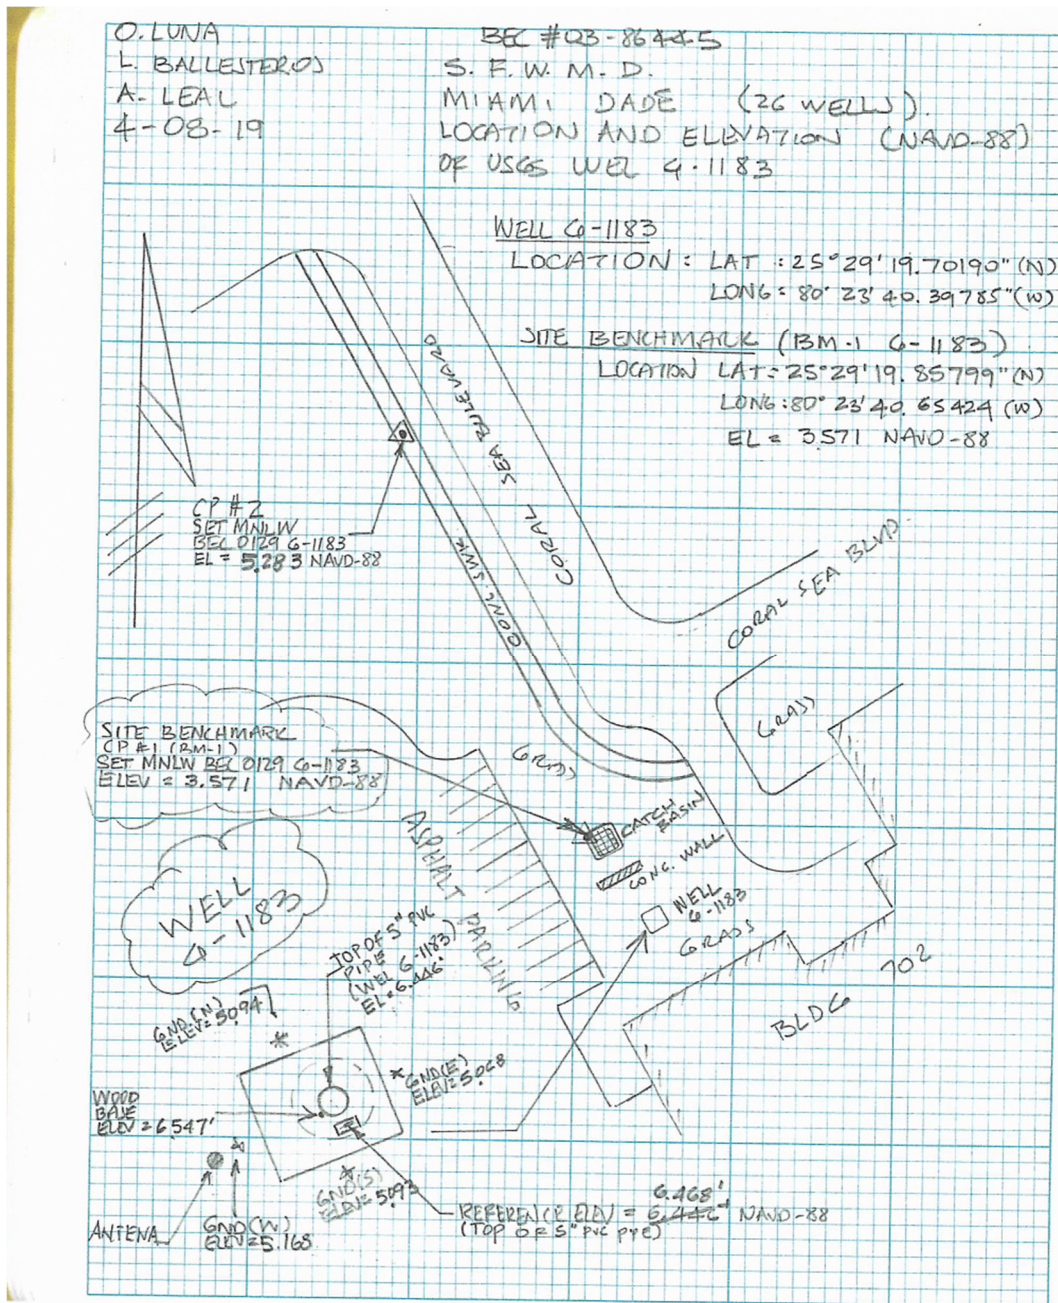 O. LUNA
L. BALLESTEROS
A. LEAL
4-08-19
BEC #03-86445
S. F. W. M. D.
MIAMI DADE (26 WELLS).
LOCATION AND ELEVATION (NAVD-88)
OF USGS WEL G-1183
WELL G-1183
LOCATION: LAT : 25°29'19.70190" (N)
LONG: 80° 23' 40.39785" (W)
SITE BENCHMARK (BM-1 G-1183)
LOCATION LAT: 25°29'19.85799" (N)
LONG: 80° 23' 40.65424 (W)
EL = 3.571 NAVD-88
CORAL SEA BULEVARD
CP #2
SET MNLW
BEC 0129 G-1183
EL = 5.283 NAVD-88
CONC. SWK
CORAL SEA BLVD
GRASS
SITE BENCHMARK
CP #1 (BM-1)
SET MNLW BEC 0129 G-1183
ELEV = 3.571 NAVD-88
GRASS
ASPHALT PARKING
CATCH
BASIN
CONC. WALL
WELL
G-1183
WELL
G-1183
GRASS
702
BLDG
TOP OF 5" PVC
PIPE
(WEL G-1183)
EL = 6.446'
GND (N)
ELEV = 5.094
GND (E)
ELEV = 5.068
WOOD
BASE
ELEV = 6.547'
GND (S)
ELEV = 5.093
ANTENA
GND (W)
ELEV = 5.168
6.468'
REFERENCE ELEV = 6.446' NAVD-88
(TOP OF 5" PVC PIPE)